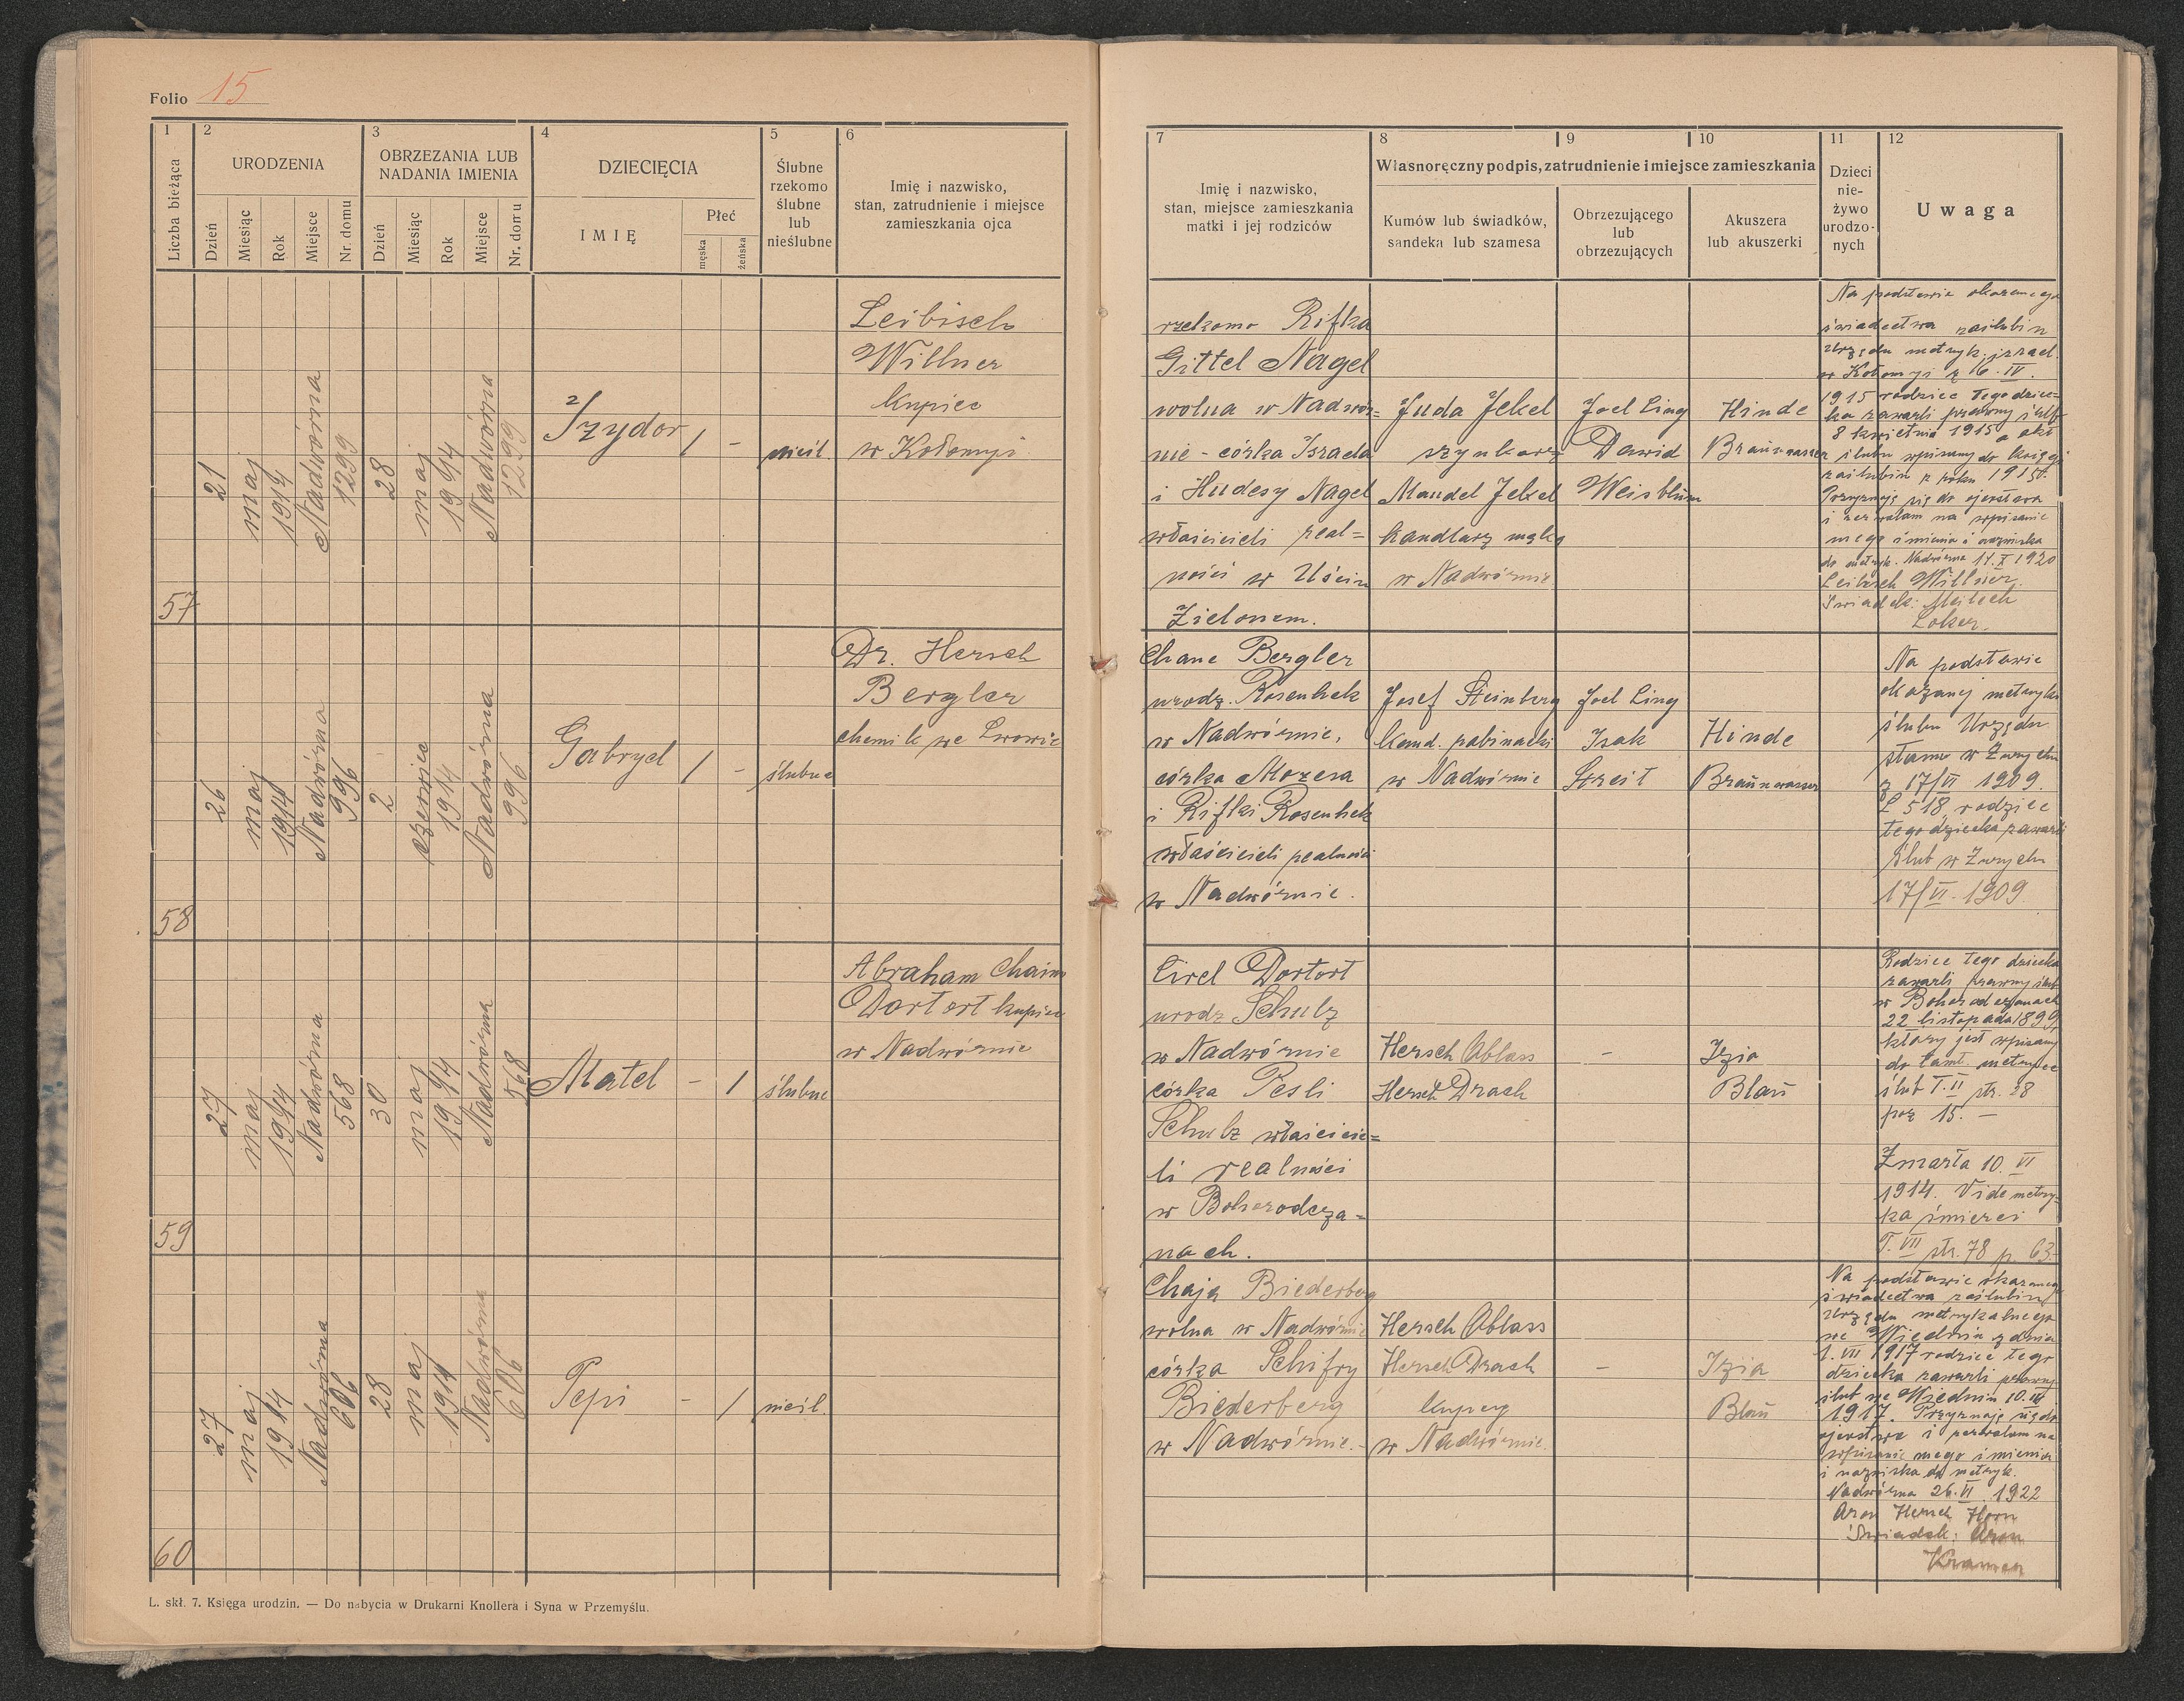 Folio 15
1
2
3
4
5
6
Liczba bieżąca
URODZENIA
Dzień
Miesiąc
Rok
Miejsce
Nr. domu
OBRZEZANIA LUB
NADANIA IMIENIA
Dzień
Miesiąc
Rok
Miejsce
Nr. domu
DZIECIĘCIA
IMIĘ
Płeć
męska
żeńska
Ślubne
rzekomo
ślubne
lub
nieślubne
Imię i nazwisko,
stan, zatrudnienie i miejsce
zamieszkania ojca
7
8
9
10
11
12
Imię i nazwisko,
stan, miejsce zamieszkania
matki i jej rodziców
Własnoręczny podpis, zatrudnienie i miejsce zamieszkania
Kumów lub świadków,
sandeka lub szamesa
Obrzezującego
lub
obrzezujących
Akuszera
lub akuszerki
Dzieci
nie-
żywo
urodzo-
nych
Uwaga
57
21
maj
1914
Nadwórna
1299
28
maj
1914
Nadwórna
1299
Izydor
/
-
nieśl.
Leibisch
Willner
kupiec
w Kołomyi
rzekomo Rifka
Gittel Nagel
wolna w Nadwór=
nie - córka Israela
i Hudesy Nagel
właścicieli real=
ności w Uściu
Zielonem.
Juda Jekel
szynkarz
Mandel Jekel
handlarz mąką
w Nadwórnie
Joel Ling
Dawid
Weisblum
Hinde
Braunwasser
Na podstawie okazanego
świadectwa zaślubin
urzędu metryk. izrael.
w Kołomyi z 6. IV.
1915 rodzice tego dziec-
ka zawarli prawny ślub
8 kwietnia 1915 a akt
ślubu wpisany do księgi
zaślubin z roku 1915.
Przyznaję się do ojcostwa
i zezwalam na wpisanie
mego imienia i nazwiska
do metryk. Nadwórna 17. X 1920
Leibisch Willner.
Świadek: Meilech
Loker.
58
26
maj
1914
Nadwórna
996
2
czerwiec
1914
Nadwórna
996
Gabryel
/
-
ślubne
Dr. Hersch
Bergler
chemik we Lwowie
Chane Bergler
urodz. Rosenhek
w Nadwórnie,
córka Mozesa
i Rifki Rosenhek
właścicieli realności
w Nadwórnie.
Josef Steinberg
kand. rabinacki
w Nadwórnie
Joel Ling
Isak
Streit
Hinde
Braunwasser
Na podstawie
okazanej metryki
ślubu Urzędu
stanu w Zurychu
z 17/VI 1909.
L 518, rodzice
tego dziecka zawarli
ślub w Zurychu
17/VI. 1909.
59
27
maj
1914
Nadwórna
568
30
maj
1914
Nadwórna
568
Matel
-
1
ślubne
Abraham Chaim
Dortort kupiec
w Nadwórnie
Cirel Dortort
urodz Schulz
w Nadwórnie
córka Pesli
Schulz właścicie=
li realności
w Bohorodcza=
nach.
Hersch Ablass
Hersch Drach
-
Izia
Blau
Rodzice tego dziecka
zawarli prawny ślub
w Bohorodczanach
22 listopada 1899,
który jest wpisany
do tamt. metryce
ślub T. II str. 28
poz 15. -
Zmarła 10. VI
1914. Vide metry-
ka śmierci
T. VII str. 78 p. 63
60
27
maj
1914
Nadwórna
606
28
maj
1914
Nadwórna
606
Pepi
-
/
nieśl.
Chaja Biederberg
wolna w Nadwórnie
córka Schifry
Biederberg
w Nadwórnie. -
Hersch Ablass
Hersch Drach
kupcy
w Nadwórnie.
-
Izia
Blau
Na podstawie okazanego
świadectwa zaślubin
urzędu metrykalnego
we Wiedniu z dnia
1. VII 1917 rodzice tego
dziecka zawarli prawny
ślub we Wiedniu 10.
1917. Przyznaję się do
ojcostwa i zezwalam na
wpisanie mego imienia
i nazwiska do metryk.
Nadwórna 26. VI 1922
Aron Hersch Horn
Świadek: Aron
Kramer
L. skł. 7. Księga urodzin. — Do nabycia w Drukarni Knollera i Syna w Przemyślu.